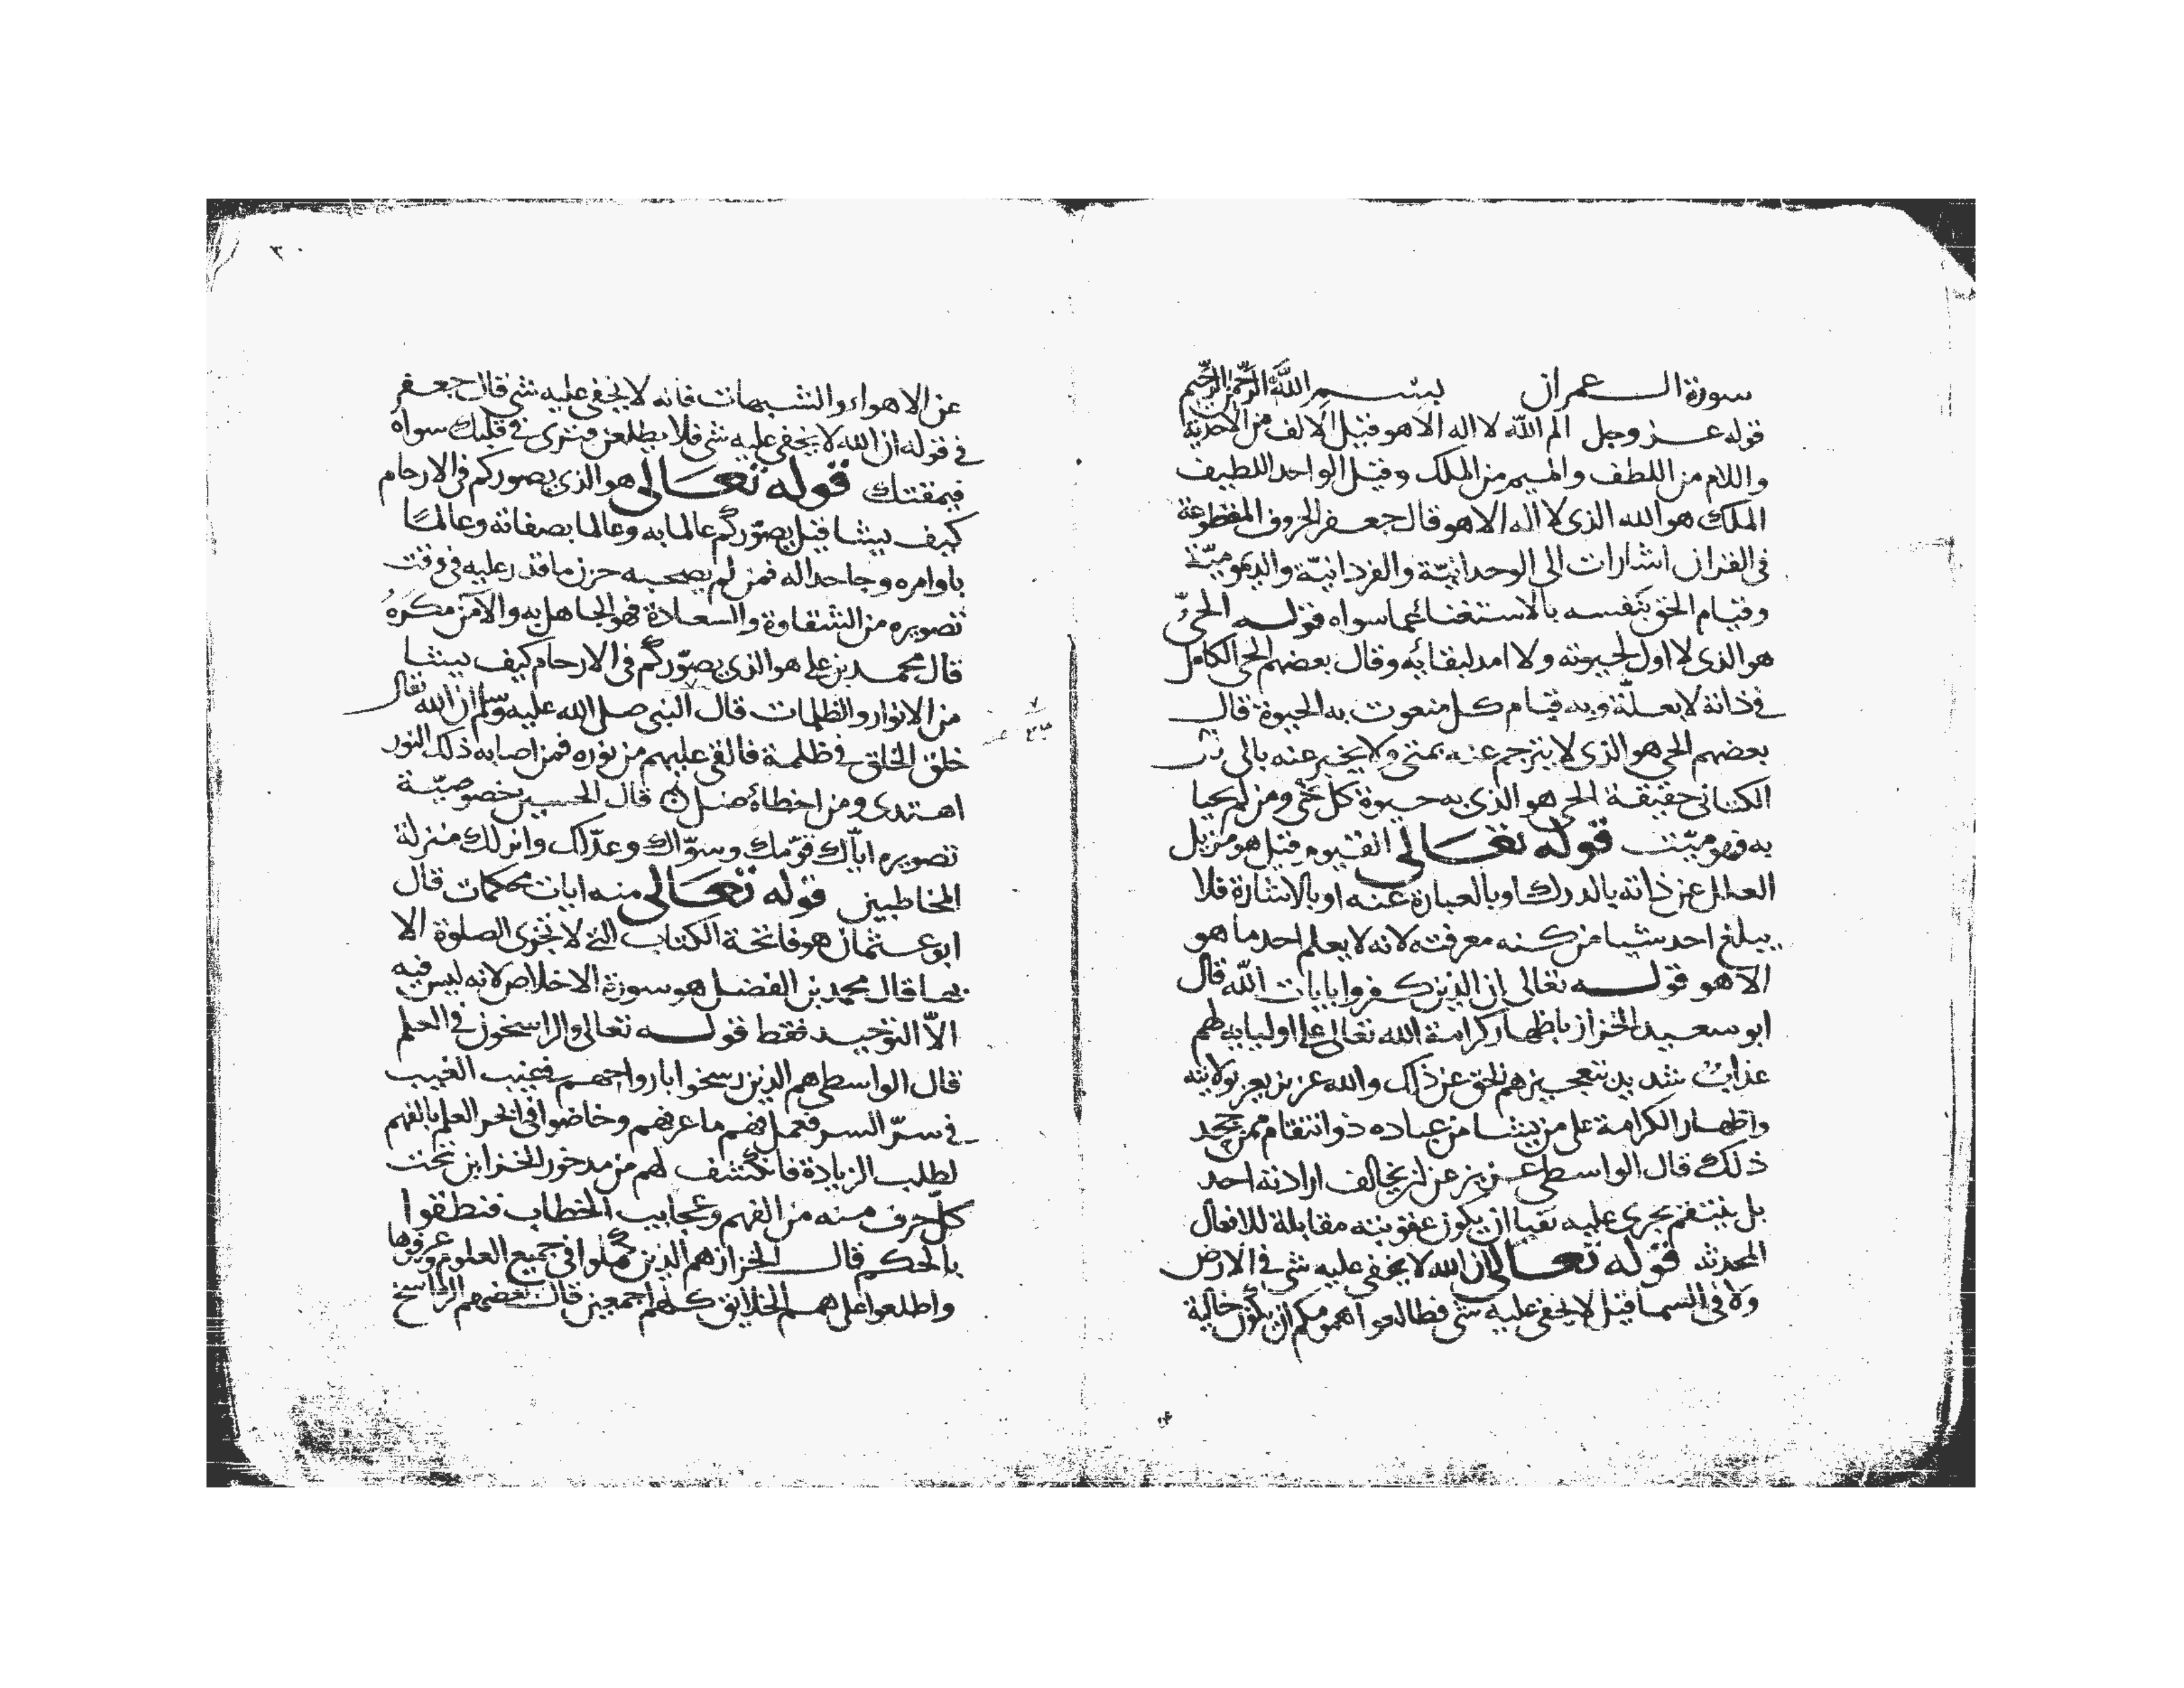 سورة ال عمران بسم الله الرحمن الرحيم
قوله عز وجل الم الله لا اله الا هو قيل الالف من الاحدية
واللام من اللطف والميم من الملك وقيل الواحد اللطيف
الملك هو الله الذى لا اله الا هو قال جعفر الحروف المقطوعة
فى القران اشارات الى الوحدانية والفردانية والديمومية
وقيام الحق بنفسه بالاستغناء عما سواه قوله الحى
هو الذى لا اول لحيوته ولا امد لبقائه وقال بعضهم الحى الكامل
فى ذاته لا بعلة وبه قيام كل منعوت به الحيوة قال
بعضهم الحى هو الذى لا يترجم عنه بمتى ولا يخبر عنه بالى
الكتانى حقيقة الحى هو الذى به حيوة كل حى ومن لم يحيا
به فهو ميت قوله تعالى القيوم قيل هو مزيل
العلل عن ذاته بالدرك او بالعبارة عنه او بالاشارة فلا
يبلغ احد شيا من كنه معرفته لانه لا يعلم احد ما هو
الا هو قوله تعالى ان الذين كفروا بايات الله قال
ابو سعيد الخراز باظهار كرامة الله تعالى على اوليايه لهم
عذاب شديد هم الحق عن ذلك والله عزيز يعز
واظهار الكرامة على من يشا من عباده ذو انتقام ممن يجحد
ذلك قال الواسطى عزيز عن ان يخالف ارادته احد
بل ينتقم يجرى عليه نفيا ان يكون عقوبته مقابلة للافعال
المحدثه قوله تعالى ان الله لا يخفى عليه شى فى الارض
ولا فى السما قيل لا يخفى عليه شى فطالعوا همومكم ان يكون خالية
٣٠
عن الاهواء والشبهات فانه لا يخفى عليه شى قال جعفر
فى قوله ان الله لا يخفى عليه شى فلا يطلعن فترى فى قلبك سواه
فيمقتك قوله تعالى هو الذى يصوركم فى الارحام
كيف يشا قيل يصوركم عالما به وعالما بصفاته وعالما
باوامره وجاحدا له فمن لم يصحبه حزن ما قدر عليه فى وقت
تصويره من الشقاوة والسعادة فهو الجاهل به والآمن مكره
قال محمد بن على هو الذى يصوركم فى الارحام كيف يشا
من الانوار والظلمات قال النبى صلى الله عليه وسلم ان الله تعالى
خلق الخلق فى ظلمة فالقى عليهم من نوره فمن اصابه ذلك النور
اهتدى ومن اخطاه ضل قال الحسين خصوصية
تصويره اياك قومك وسواك وعدلك وانزلك منزلة
المخاطبين قوله تعالى منه ايات محكمات قال
ابو عثمان هو فاتحة الكتاب التى لا تجزى الصلوة الا
بها قال محمد بن الفضل هو سورة الاخلاص لانه ليس فيه
الا التوحيد فقط قوله تعالى والراسخون فى العلم
قال الواسطى هم الذين رسخوا بارواحهم فى غيب الغيب
فى سر السر فعرفهم ما عرفهم وخاضوا فى بحر العلم بالفهم
لطلب الزيادة فانكشف لهم من مدخور الخزاين تحت
كل حرف منه من الفهم وعجايب الخطاب فنطقوا
بالحكم قال الخراز هم الذين كملوا فى جميع العلوم وعرفوها
واطلعوا على همم الخلايق كلهم اجمعين قال بعضهم الراسخ